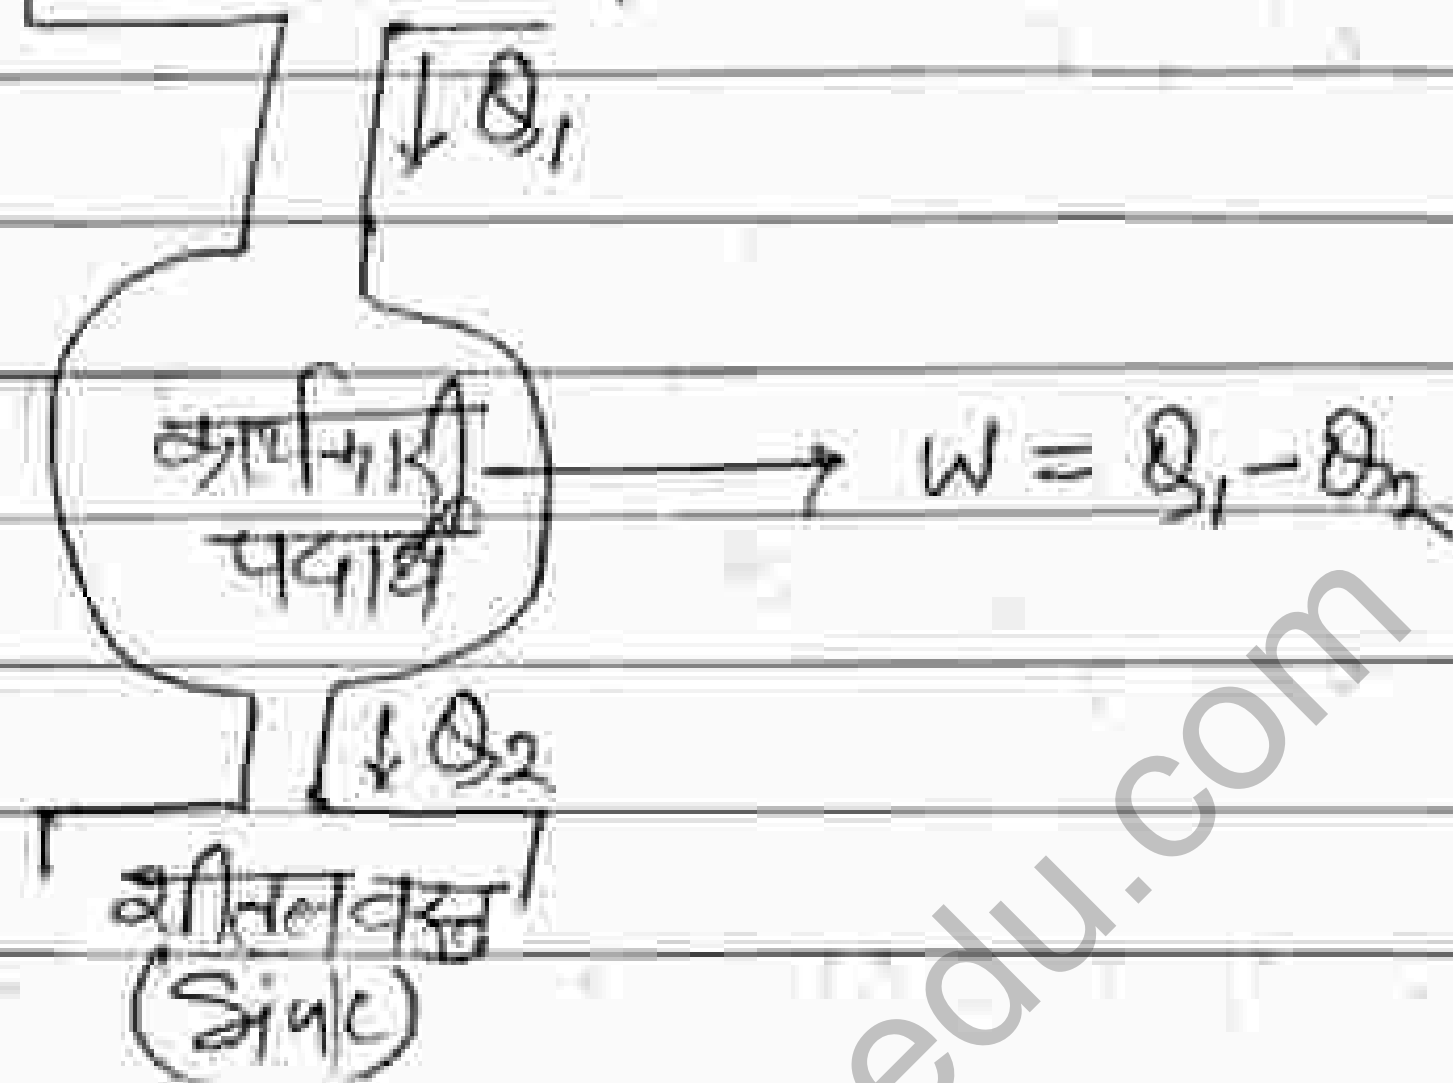 ↓ Q1
कार्यकारी
पदार्थ
→ W = Q1 - Q2
↓ Q2
शीतल वस्तु
(Sink)
edu.com